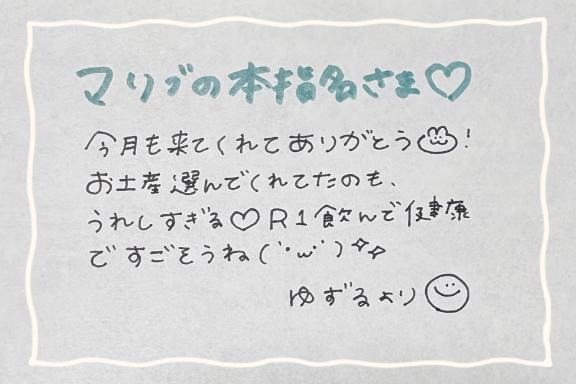 マリブの本指名さま♡
今月も来てくれてありがとう!
お土産選んでくれてたのも、
うれしすぎる♡R1飲んで健康
ですごそうね(˙ω˙)✧✧
ゆずるより